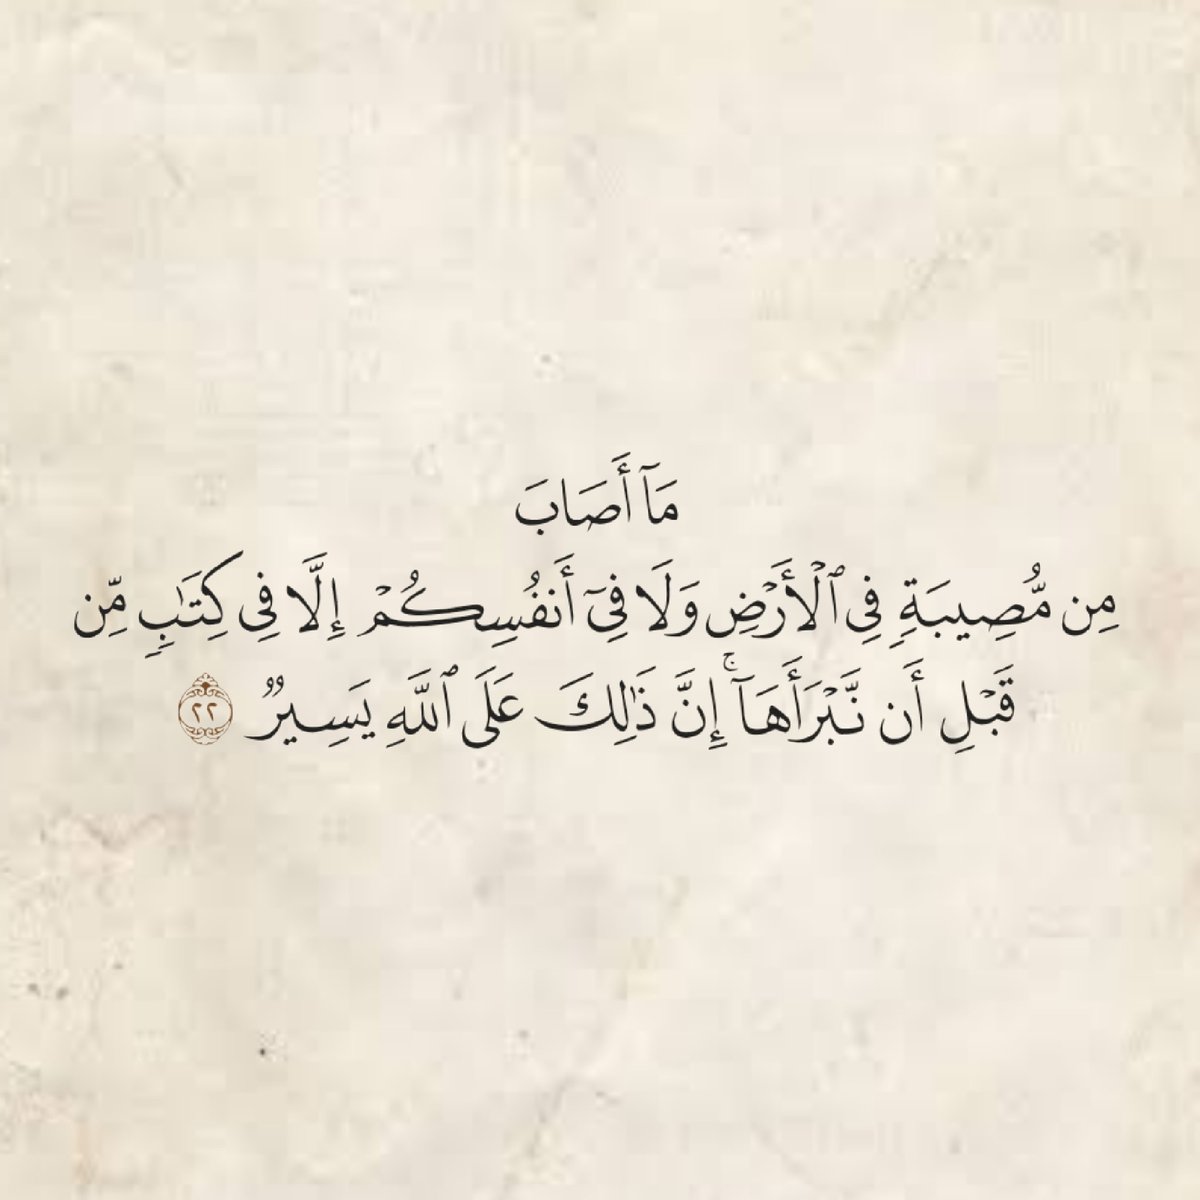 مَآ أَصَابَ
مِن مُّصِيبَةٍ فِى ٱلْأَرْضِ وَلَا فِىٓ أَنفُسِكُمْ إِلَّا فِى كِتَٰبٍ مِّن
قَبْلِ أَن نَّبْرَأَهَآ ۚ إِنَّ ذَٰلِكَ عَلَى ٱللَّهِ يَسِيرٌ ٢٢